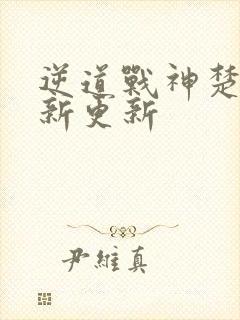 逆道戰神楚
新更新
尹維真